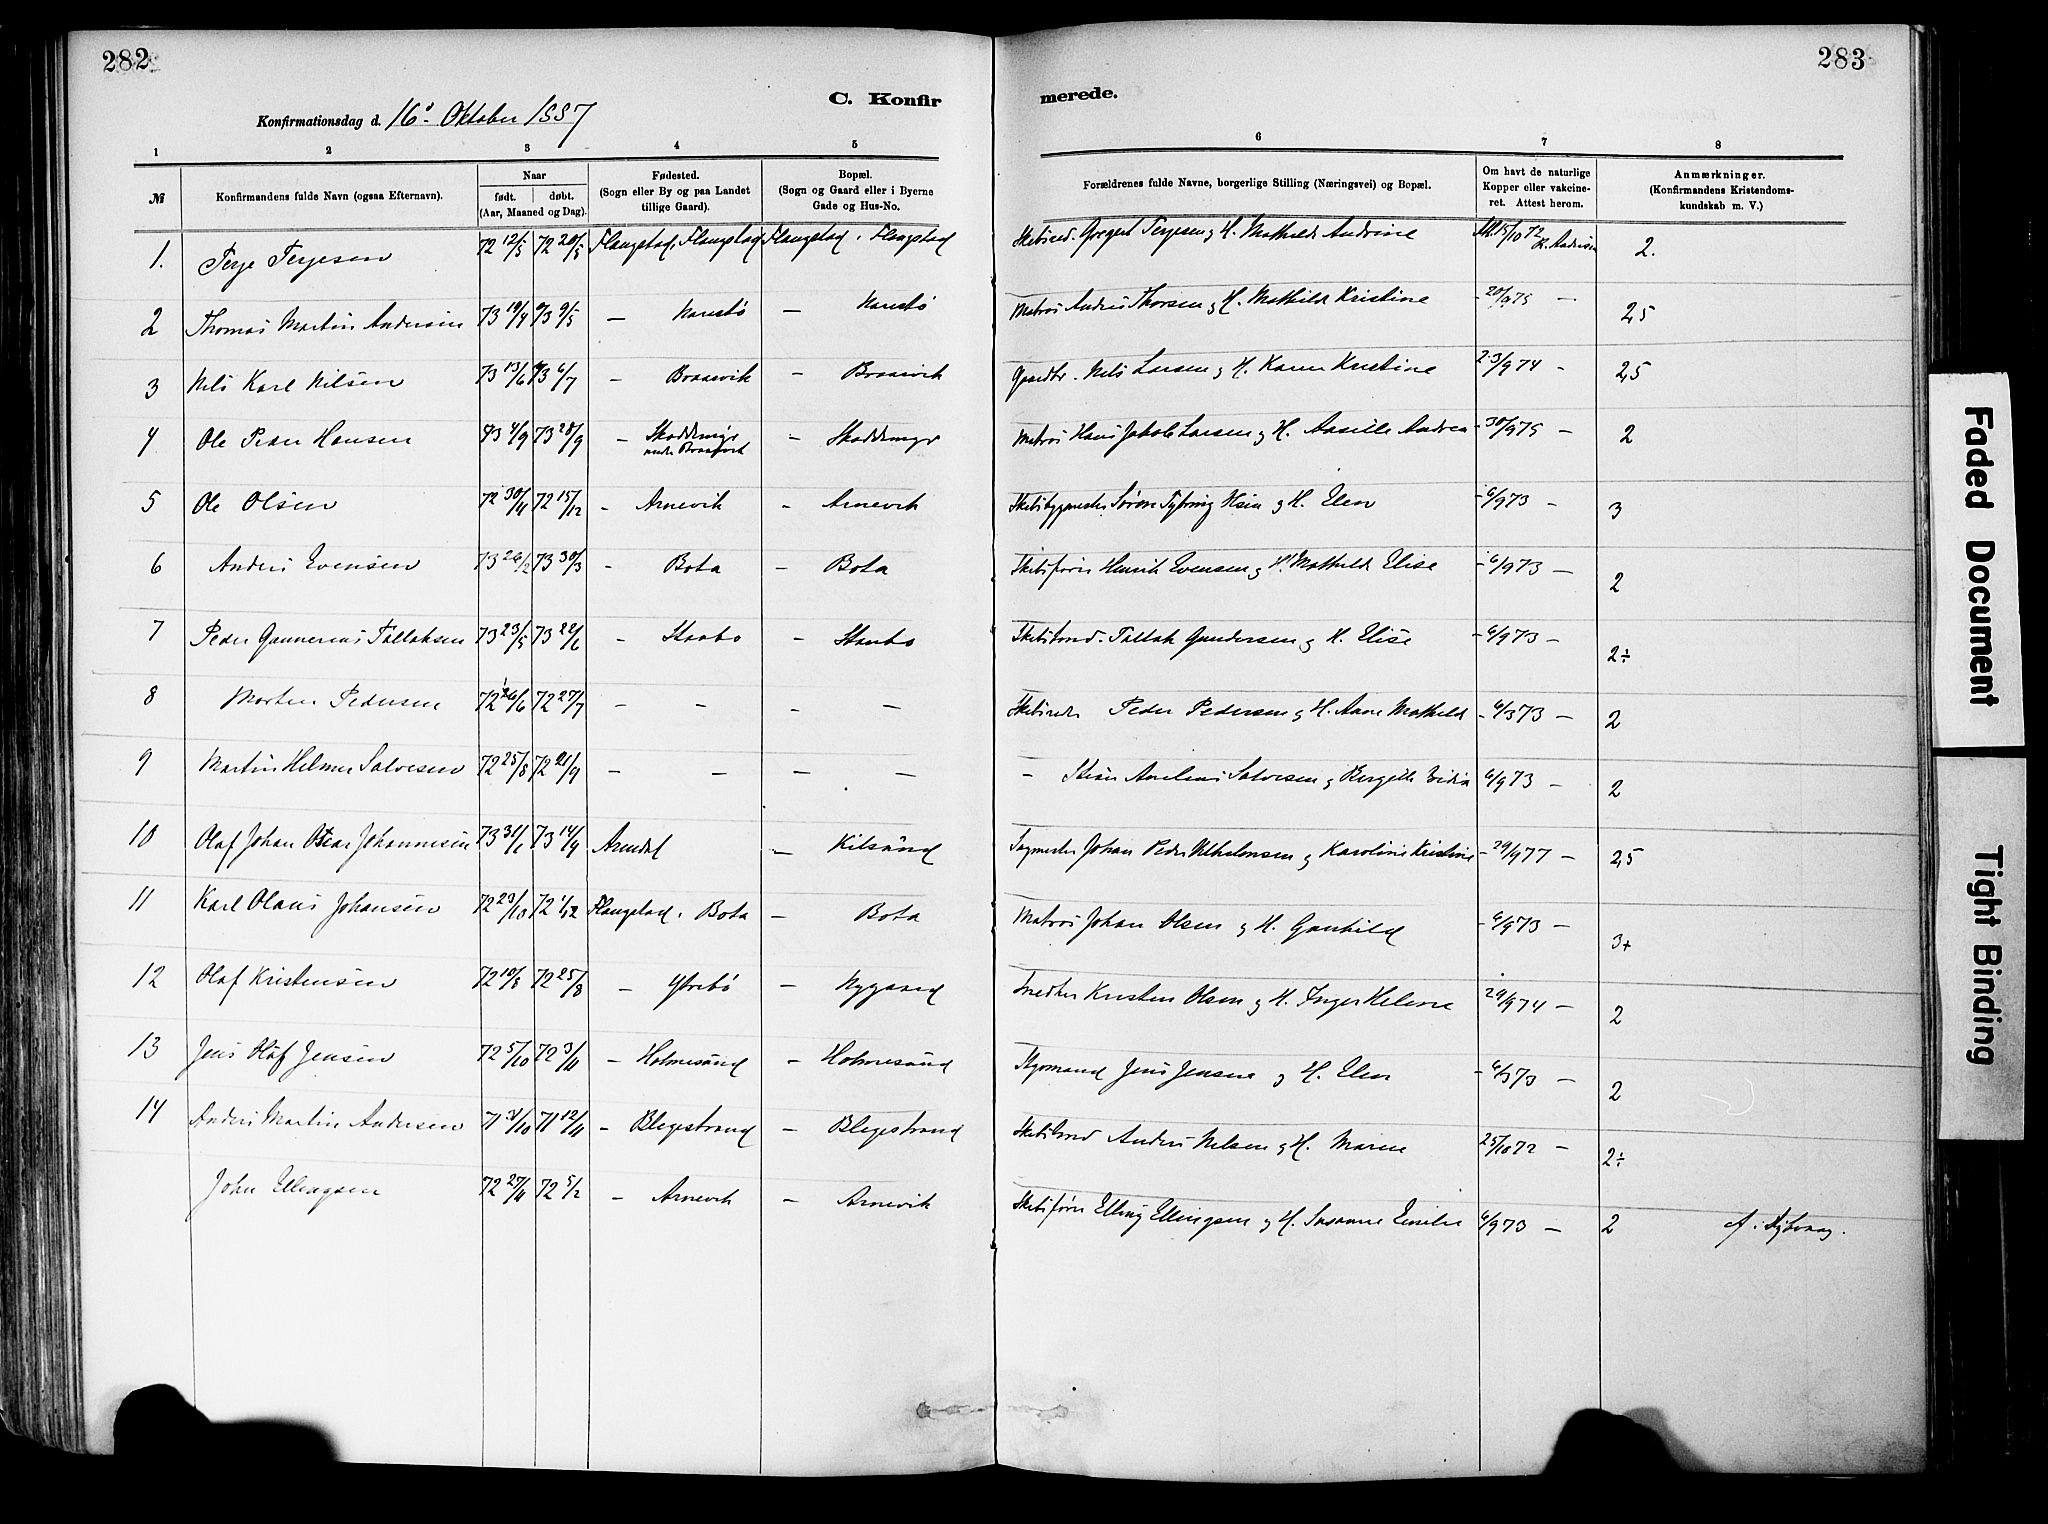 282
283
C. Konfir
merede.
Konfirmationsdag d. 16de Oktober 1887
1 2 3 4 5 6 7 8
№
Konfirmandens fulde Navn (ogsaa Efternavn).
Naar
født. døbt.
(Aar, Maaned og Dag).
Fødested.
(Sogn eller By og paa Landet
tillige Gaard).
Bopæl.
(Sogn og Gaard eller i Byerne
Gade og Hus-No.
Forældrenes fulde Navne, borgerlige Stilling (Næringsvei) og Bopæl.
Om havt de naturlige
Kopper eller vakcine-
ret. Attest herom.
Anmærkninger.
(Konfirmandens Kristendoms-
kundskab m. V.)
1. Terje Terjesen 72 12/5 72 20/5 Flangstad, Flangstad Flangstad, Flangstad Terjesen og H. Mathilde Andrine 15/10 72 2.
2 Thomas Martin Andersen 73 19/4 73 9/5 — — Matros Anders Thorsen og H. Mathilde Kristine 2,5
3 Nils Karl Nilsen 73 13/6 73 6/7 — Braarvik — Braarvik Gaardbr. Nils Larsen og H. Karen Kristine 23/9 74 - 2,5
4 Ole Peder Hansen 73 4/9 73 28/9 — — Matros Hans Jakob Larsen og H. Andrea 30/9 75 - 2
5 Ole Olsen 72 30/11 72 15/12 - Arnevik - Arnevik og H. Elen - 6/9 73 - 3
6 Anders Evensen 73 26/2 73 30/3 - Bota - Bota Skibsfører Henrik Evensen og H. Mathilde Elise - 6/9 73 — 2
7 Peder Gunnerius Tallaksen 73 23/5 73 22/6 - Staubo — Staubo Skibstmd. Tallak Gundersen og H. Elise - 6/9 73 - 2÷
8 Morten Pedersen 72 26/6 72 27/7 — — — — Skibsreder Peder Pedersen og H. Anne Mathilde - 6/9 73 — 2
9 Martin Helmer Salvesen 72 25/8 72 21/9 — — — — - Salvesen og 6/9 73 - 2
10 Olaf Johan Oscar Johannesen 73 31/1 73 14/9 Arendal — Kilsund Johan Peder og Karoline Kristine - 29/9 77 — 2,5
11 Karl Olaus Johansen 72 23/10 72 1/12 Flangstad, Bota — Bota Matros Johan Olsen og H. Gunhild - 6/9 73 — 3+
12 Olaf Kristensen 72 10/8 72 25/8 — Ytrebø — Nygaard Kristen Olsen og H. Inger Helene 29/9 74 — 2
13 Jens Olaf Jensen 72 5/10 72 3/11 — Holmesund — Holmesund Jens Jensen og H. Elen - 6/9 73 — 2
14 Anders Martin Andersen 71 71 12/11 — Blegestrand — Blegestrand Skibstmd Anders Nilsen og H. Maren 25/10 72 — 2÷
John Ellingsen 72 27/11 72 — Arnevik — Arnevik Skibsfører Elling Ellingsen og H. Susanne Emilie 6/9 73 — 2
Faded Document
Tight Binding